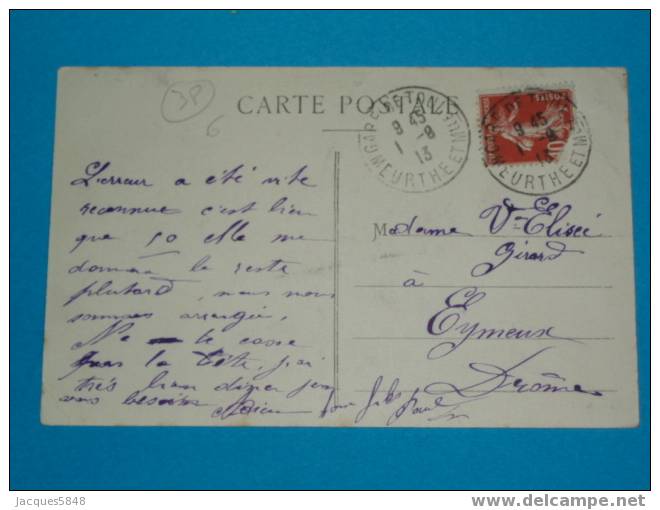 JP
6
CARTE POSTALE
GARE DE TOUL
9 45
1 - 8
13
MEURTHE ET M
POSTES
10
9 45
1 - 8
13
MEURTHE ET M
L'erreur a été vite
reconnue c'est bien
que 50 elle me
le reste
plutard, nous nous
sommes arrangés,
Ne te casse
pas la tête, j'ai
très bien diner
vos besoins Adieu
ton fils Paul
Madame Vve Elisée
Girard
à
Eymeux
Drôme
Jacques5848
delcampe.net